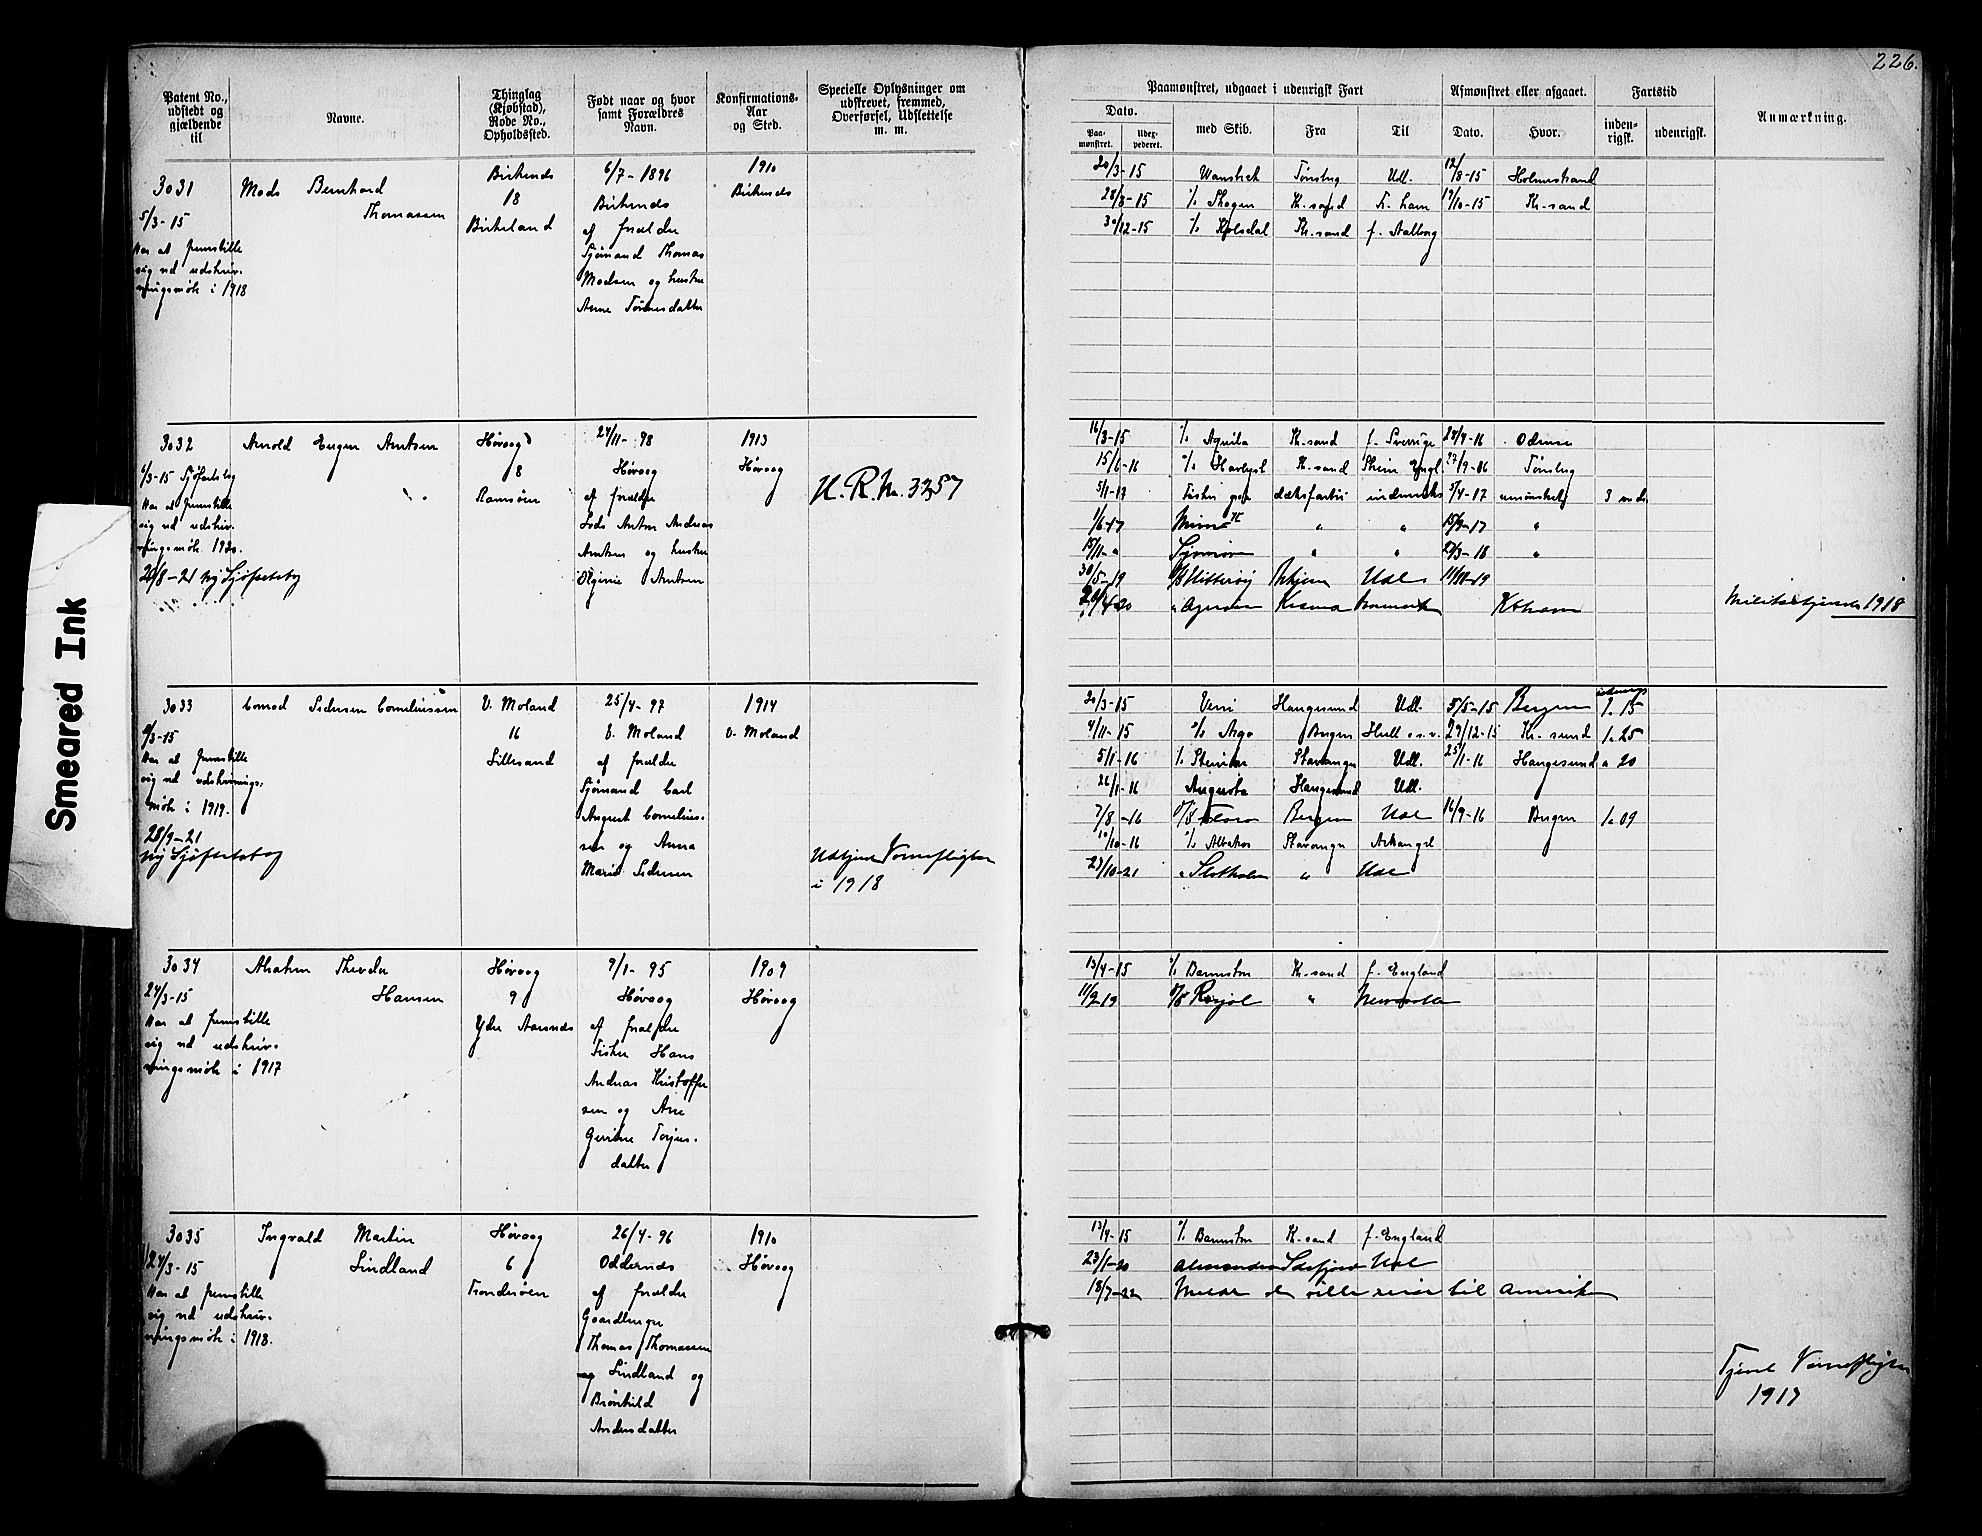 226.
Patent No., udstedt og gjældende til
Navne.
Thinglag (Kjøbstad), Rode No., Opholdssted.
Født naar og hvor samt Forældres Navn.
Konfirmations- Aar og Sted.
Specielle Oplysninger om udskrevet, fremmed, Overførsel, Udslettelse m. m.
Paamønstret, udgaaet i udenrigsk Fart
Dato.
Paa- mønstret.
Udex- pederet.
med Skib.
Fra
Til
Afmønstret eller afgaaet.
Dato.
Hvor.
Fartstid
inden- rigsk.
udenrigsk.
Anmærkning.
3031
5/3-15
Har at fremstille
sig ved udskriv-
ningsmøte i 1918
Mads Bernhard
Thomassen
Birkenes
18
Birkeland
6/7-1896
Birkenes
af forældre
Sjømand Thomas
Madsen og hustru
Anne Tørresdatter
1910
Birkenes
20/3-15 Wanstick Tønsberg Udl. 12/8-15 Holmestrand
28/8-15 Skogen Kr.sand 19/10-15 Kr-sand
30/12-15 Kolsdal Kr.sand f. Aalborg
3032
6/3-15 Sjøfartsbog
Har at fremstille
sig ved udskriv-
ningsmøte 1920.
20/8-21 Ny Sjøfartsbog
Arnold Eugen Arntsen
Høvaag
8
Ramsøen
24/11-98
Høvaag
af forældre
Lods Anton Andreas
Arntsen og hustru
Olginie Arntsen
1913
Høvaag
U. R. No. 3257
16/3-15 Aquila Kr.sand f. Sverige 28/4-16 Odense
15/6-16 Havlyst Kr.sand Engl. 27/9-16 Tønsberg
5/1-17 5/4-17 3 mdr
1/6-17 15/9-17 "
15/11-" 27/3-18 "
30/5-19 Hitterøy Udl 11/11-19
20/4-20
Militærtjeneste 1918
3033
8/3-15
Har at fremstille
sig ved udskrivnings-
møte i 1919.
28/9-21
Ny Sjøfartsbog
Conrad Pedersen Corneliussen
V. Moland
16
Lillesand
25/4-97
V. Moland
af forældre
Sjømand Carl
August Cornelius-
sen og Anna
Marie Pedersen
1914
V. Moland
Udtjent Vernepligten
i 1918
20/3-15 Haugesund Udl. 5/5-15 Bergen 1.15
4/11-15 Argo Bergen Hull o.s.v. 29/12-15 Kr.sund 1.25
5/1-16 Stavanger Udl. 25/1-16 Haugesund " 20
26/1-16 Augusta Haugesund Udl.
7/8-16 Flora Bergen Udl 16/9-16 Bergen 1.09
10/10-16 Albatros Stavanger Arkangel
23/10-21 Slotholm " Udl
3034
24/3-15
Har at fremstille
sig ved udskriv-
ningsmøte i 1917
Abraham Theodor
Hansen
Høvaag
9
Ydre Aarsnes
9/1-95
Høvaag
af forældre
Fisker Hans
Andreas Kristoffer
sen og Ane
Gurine Terjes-
datter
1909
Høvaag
13/4-15 Kr.sand f. England
11/9 19 "
3035
24/3-15
Har at fremstille
sig ved udskriv-
ningsmøte i 1918.
Ingvald Martin
Lindland
Høvaag
6
Trondsøen
26/4-96
Oddernes
af forældre
Gaardbruger
Thomas Thomassen
Lindland og
Brønhild
Andersdatter
1910
Høvaag
13/4-15 Kr.sand f. England
23/1-20 Udl
18/7-22 at ville reise til Amerika
Tjent Vernepligten
1917
Smeared Ink